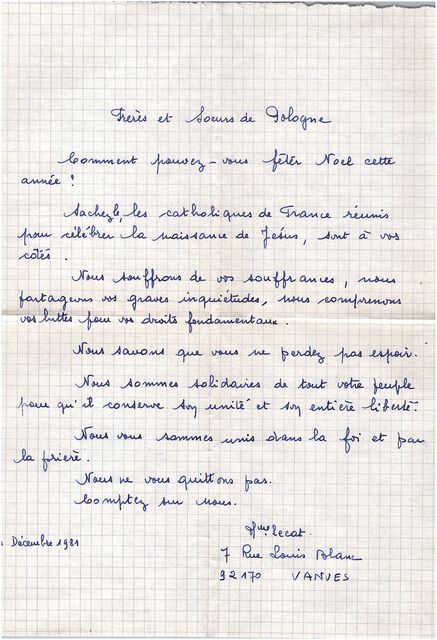 Frères et Soeurs de Pologne
Comment pouvez-vous fêter Noel cette
année !
Sachez le, les catholiques de France réunis
pour célébrer la naissance de Jésus, sont à vos
côtés.
Nous souffrons de vos souffrances, nous
partageons vos graves inquiétudes, nous comprenons
vos luttes pour vos droits fondamentaux.
Nous savons que vous ne perdez pas espoir.
Nous sommes solidaires de tout votre peuple
pour qu'il conserve son unité et son entière liberté.
Nous vous sommes unis dans la foi et par
la prière.
Nous ne vous quittons pas.
Comptez sur nous.
Mme Lecat.
Décembre 1981
7 Rue Louis Blanc
92170 VANVES